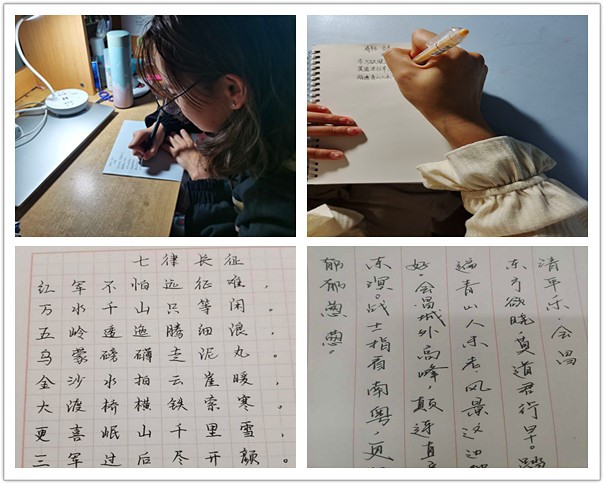 七律长征
红军不怕远征难，
万水千山只等闲。
五岭逶迤腾细浪，
乌蒙磅礴走泥丸。
金沙水拍云崖暖，
大渡桥横铁索寒。
更喜岷山千里雪，
三军过后尽开颜。
清平乐·会昌
东方欲晓，莫道君行早。踏
遍青山人未老，风景这边
好。会昌城外高峰，颠连直
东溟。战士指看南粤，更
郁郁葱葱。